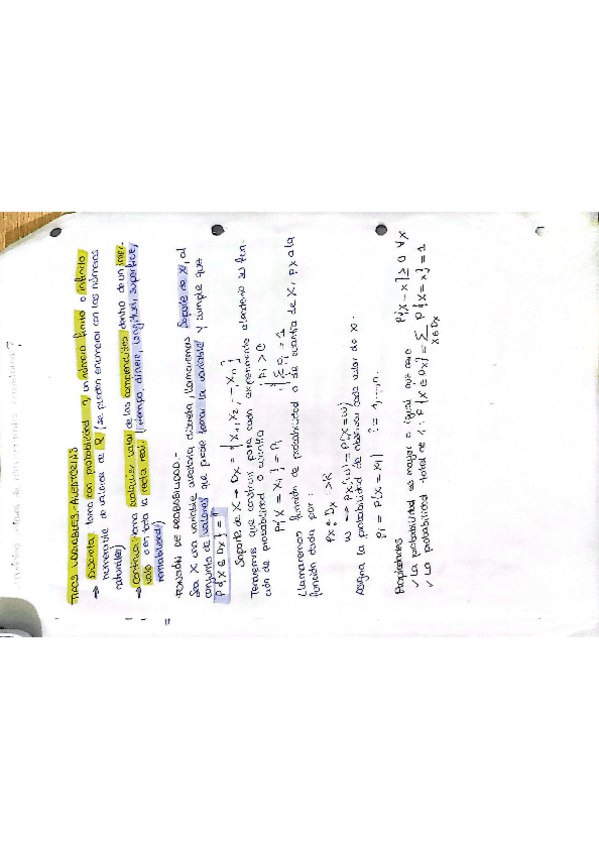 TIPOS VARIABLES ALEATORIAS
→ Discreta: toma con probabilidad 1 un número finito o infinito
numerable de valores de R (se pueden enumerar con los números
naturales)
→ Continua: toma cualquier valor de los comprendidos dentro de un inter-
valo o en toda la recta real. (tiempo, dinero, longitud, superficie,
FUNCIÓN DE PROBABILIDAD.-
Sea X una variable aleatoria discreta, llamaremos Soporte de X, al
conjunto de valores que puede tomar la variable y cumple que
P{X ∈ Dx} = 1
Soporte de X → Dx = {x1, x2, ... xn}
Tenemos que construir para cada experimento aleatorio su fun-
ción de probabilidad o cuantía
P{X = xi} = Pi
Pi > 0
Σ Pi = 1
Llamaremos función de probabilidad o de cuantía de X, px a la
función dada por:
px: Dx → R
ω → px(ω) = P{X = ω}
Asigna la probabilidad de observar cada valor de x.
Pi = P{X = xi} i = 1, ..., n.
Propiedades
✓ La probabilidad es mayor o igual que cero P{X = x} ≥ 0 ∀x
✓ La probabilidad total es 1: P{X ∈ Dx} = Σ x∈Dx P{X = x} = 1